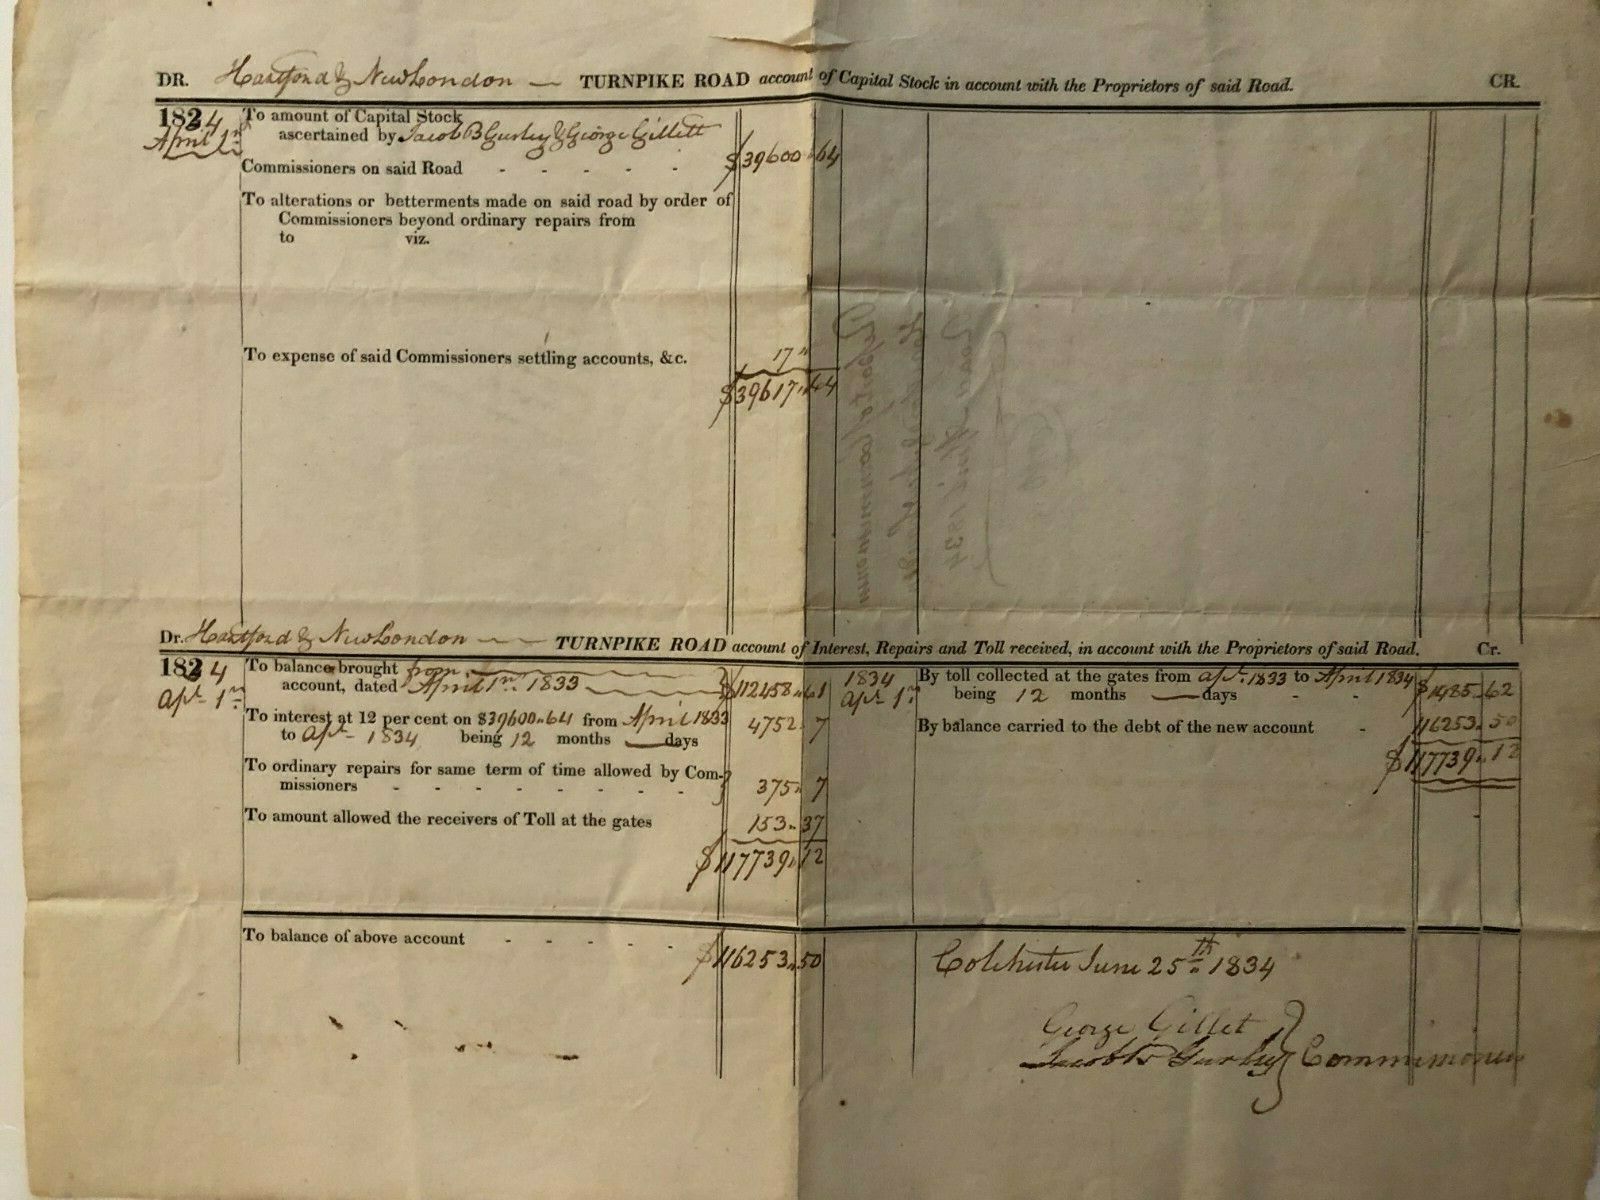 DR. Hartford & New London — TURNPIKE ROAD account of Capital Stock in account with the Proprietors of said Road. CR.
1824
April 1st
To amount of Capital Stock
ascertained by Jacob B Gurley & George Gillett
Commissioners on said Road - - - - - $39600 " 64
To alterations or betterments made on said road by order of
Commissioners beyond ordinary repairs from
to viz.
To expense of said Commissioners settling accounts, &c. 17 "
$39617 " 64
Dr. Hartford & New London — TURNPIKE ROAD account of Interest, Repairs and Toll received, in account with the Proprietors of said Road. Cr.
1824
Apl 1st
To balance brought from
account, dated April 1st 1833 $112458 " 61
To interest at 12 per cent on $39600 " 64 from April 1833
to Apl 1834 being 12 months — days 4752 " 7
To ordinary repairs for same term of time allowed by Com-
missioners - - - - - - - - 375 " 7
To amount allowed the receivers of Toll at the gates 153 " 37
$117739 " 12
1834
Apl 1st
By toll collected at the gates from Apl 1833 to April 1834
being 12 months — days - - - $1485 " 62
By balance carried to the debt of the new account - 116253 " 50
$117739 " 12
To balance of above account - - - - - $116253 " 50
Colchester June 25th 1834
George Gillet
Jacob B Gurley } Commissioners